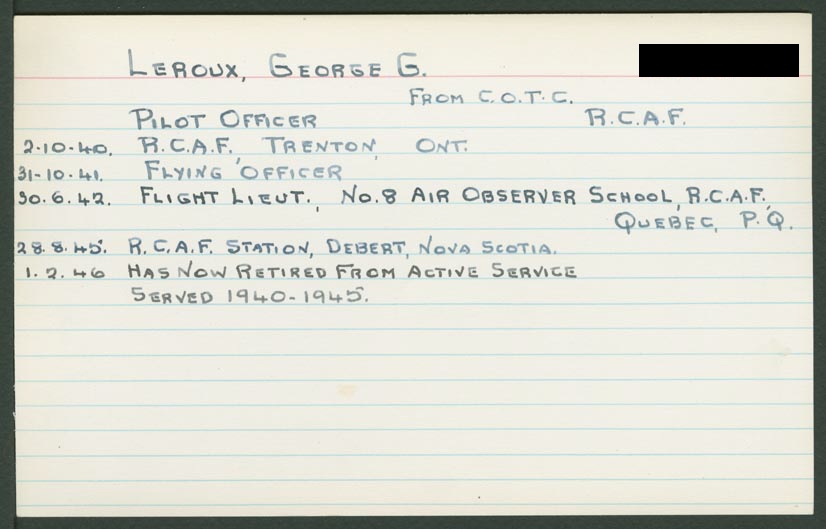 LEROUX, GEORGE G.
FROM C.O.T.C.
PILOT OFFICER R.C.A.F.
2.10.40. R.C.A.F. TRENTON, ONT.
31.10.41. FLYING OFFICER
30.6.42. FLIGHT LIEUT., NO.8 AIR OBSERVER SCHOOL, R.C.A.F.
QUEBEC, P.Q.
28.8.45. R.C.A.F. STATION, DEBERT, NOVA SCOTIA.
1.2.46 HAS NOW RETIRED FROM ACTIVE SERVICE
SERVED 1940-1945.